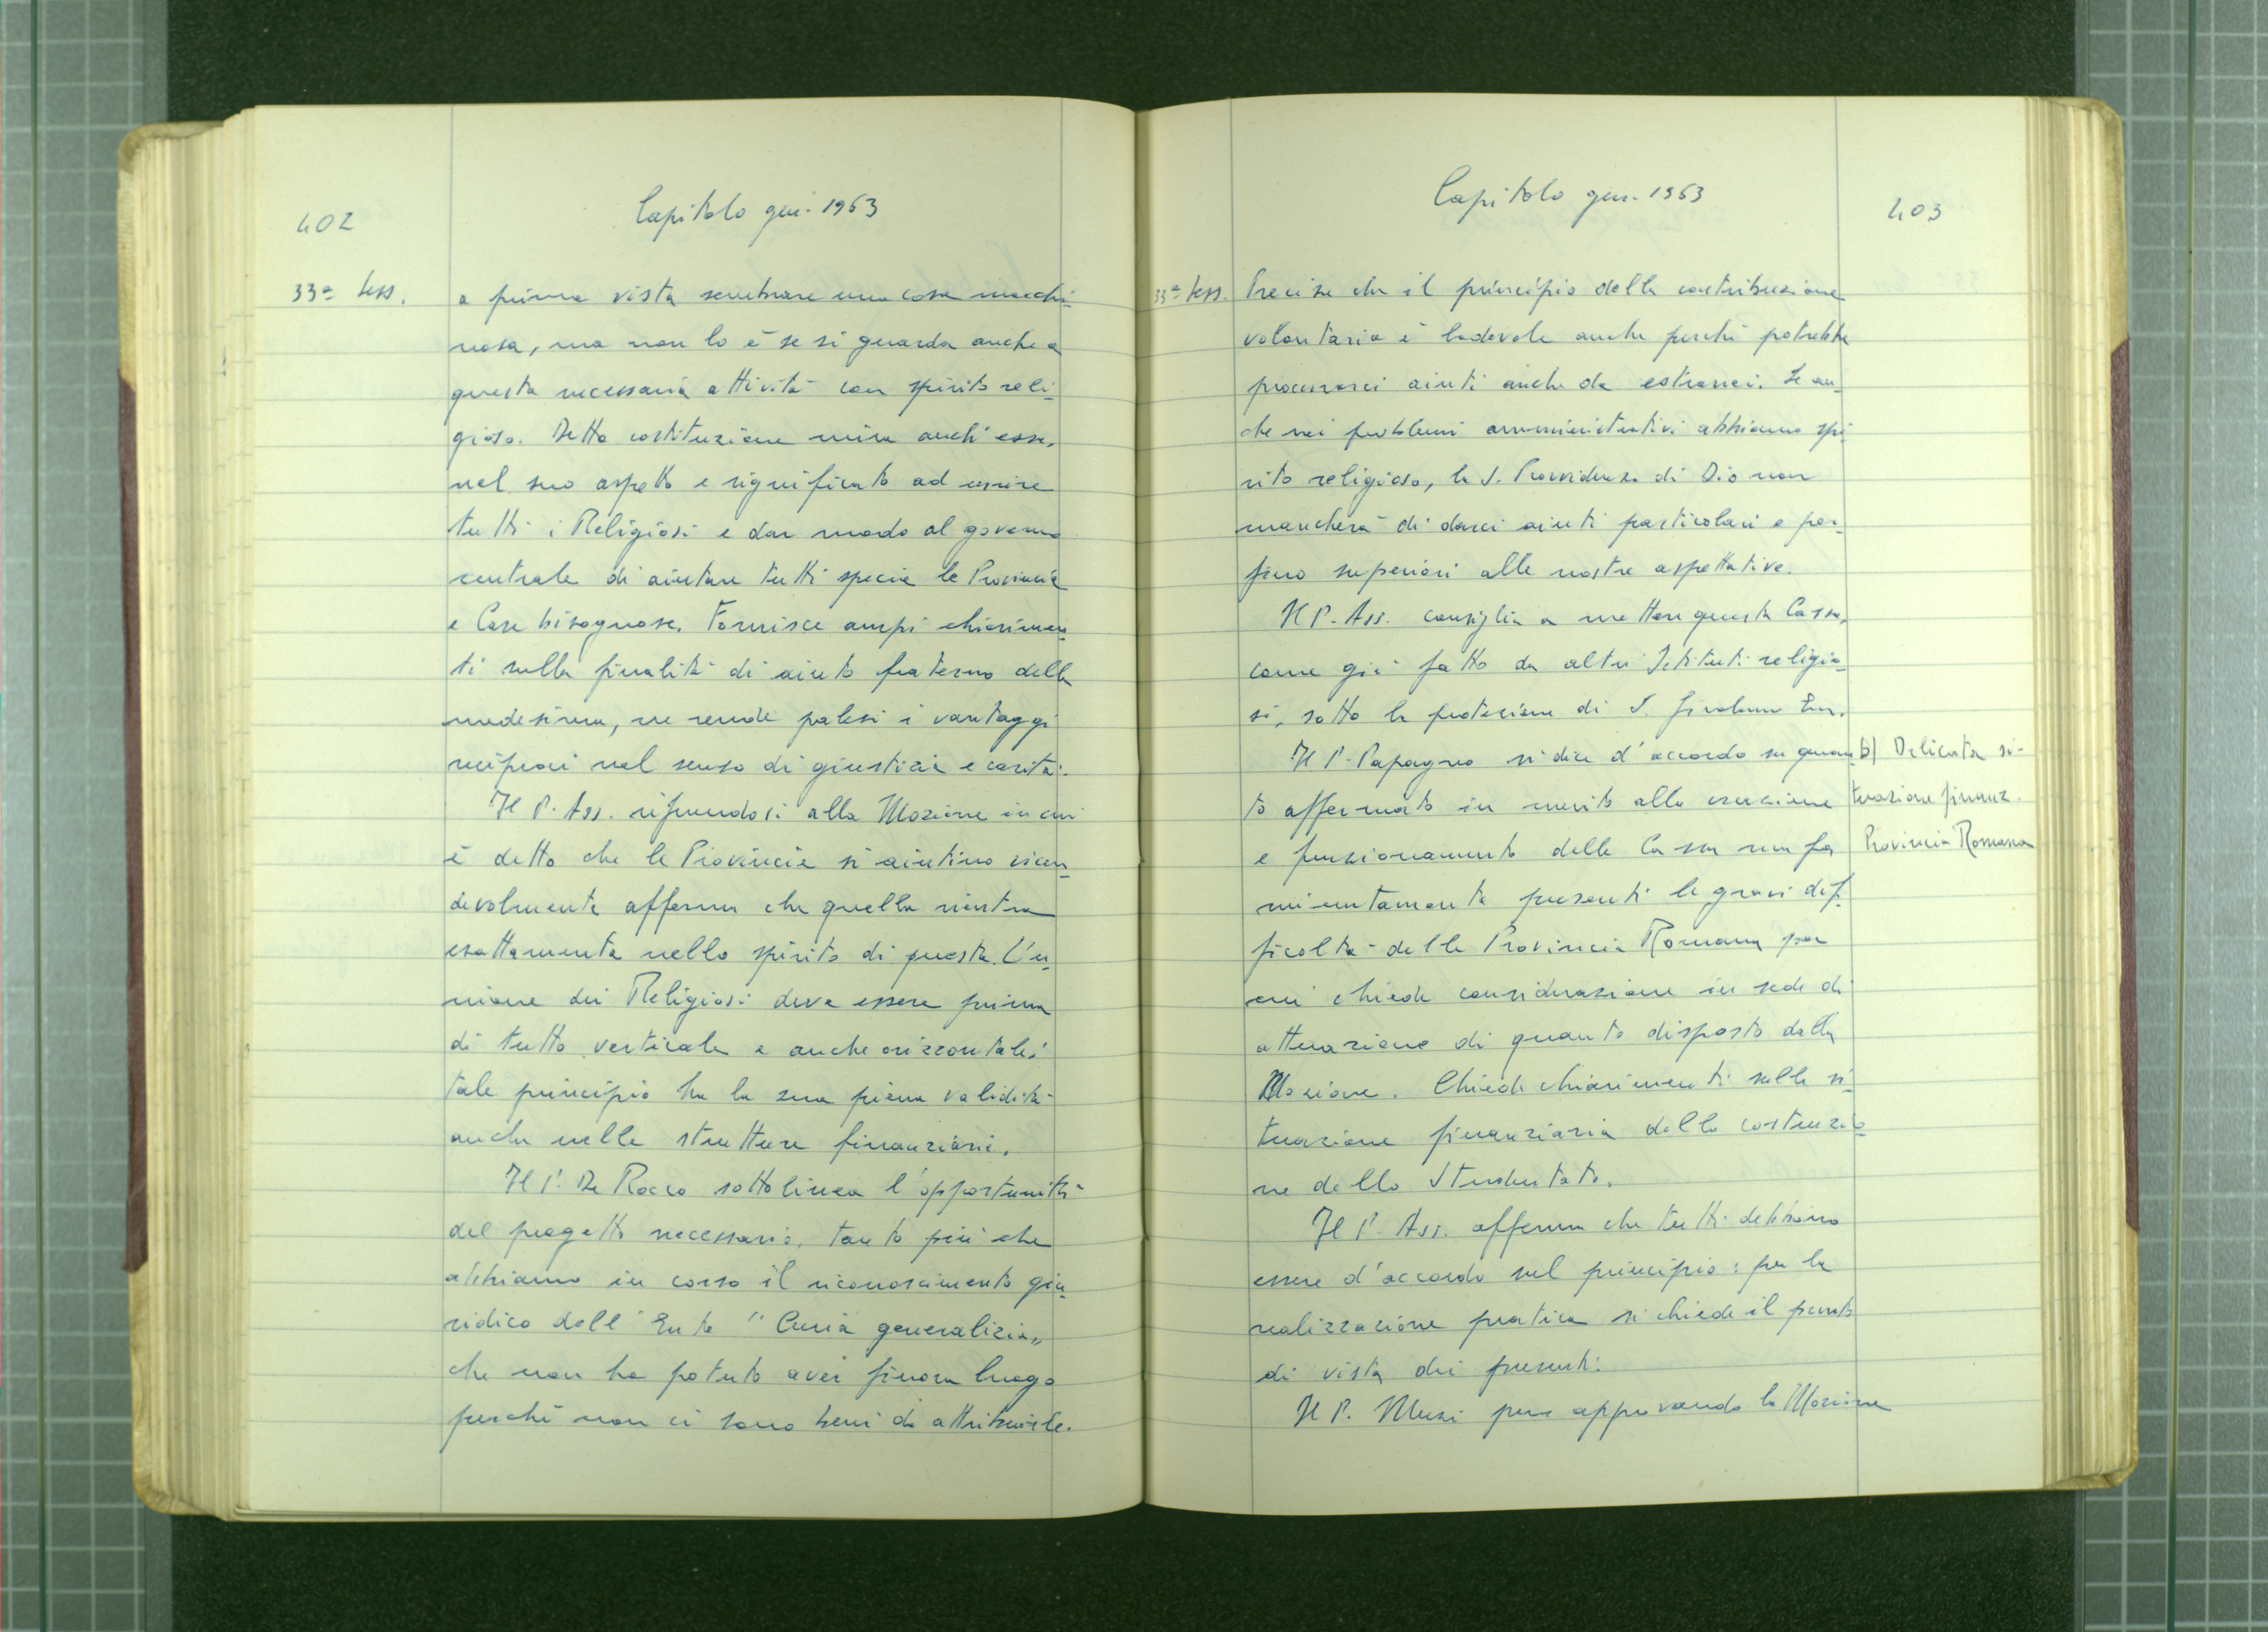 402
Capitolo gen. 1963
33ª Sess.
a prima vista sembrare una cosa macchi-
nosa, ma non lo è se si guarda anche a
questa necessaria attività con spirito reli-
gioso. Detta costituzione mira anch'essa,
nel suo aspetto e significato ad unire
tutti i Religiosi e dar modo al governo
centrale di aiutare tutti specie le Provincie
e Case bisognose. Fornisce ampi chiarimen-
ti sulla finalità di aiuto fraterno della
medesima, ne rende palesi i vantaggi
reciproci nel senso di giustizia e carità.
Il P. Ass. riferendosi alla Mozione in cui
è detto che le Provincie si aiutino vicen-
devolmente afferma che quella rientra
esattamente nello spirito di questa. L'u-
nione dei Religiosi deve essere prima
di tutto verticale e anche orizzontale:
tale principio ha la sua piena validità
anche nelle strutture finanziarie.
Il P. De Rocco sottolinea l'opportunità
del progetto necessario, tanto più che
abbiamo in corso il riconoscimento giu-
ridico dell'Ente "Curia generalizia"
che non ha potuto aver finora luogo
perché non ci sono beni da attribuirle.
Capitolo gen. 1963
403
33ª Sess.
Precisa che il principio della contribuzione
volontaria è lodevole anche perché potrebbe
procurarci aiuti anche da estranei. Se an-
che nei problemi amministrativi abbiamo spi-
rito religioso, la S. Provvidenza di Dio non
mancherà di darci aiuti particolari e per-
fino superiori alle nostre aspettative.
Il P. Ass. consiglia a mettere questa Cassa,
come già fatto da altri Istituti religio-
si, sotto la protezione di S. Girolamo Em.
Il P. Papagno si dice d'accordo su quan-
to affermato in merito alla erezione
e funzionamento della Cassa ma fa
minutamente presenti le gravi dif-
ficoltà della Provincia Romana per
cui chiede considerazione in sede di
attuazione di quanto disposto dalla
Mozione. Chiede chiarimenti sulla si-
tuazione finanziaria della costruzio-
ne dello Studentato.
Il P. Ass. afferma che tutti debbano
essere d'accordo sul principio: per la
realizzazione pratica si chiede il punto
di vista dei presenti.
Il P. Muzi pur approvando la Mozione
b) Delicata si-
tuazione finanz.
Provincia Romana